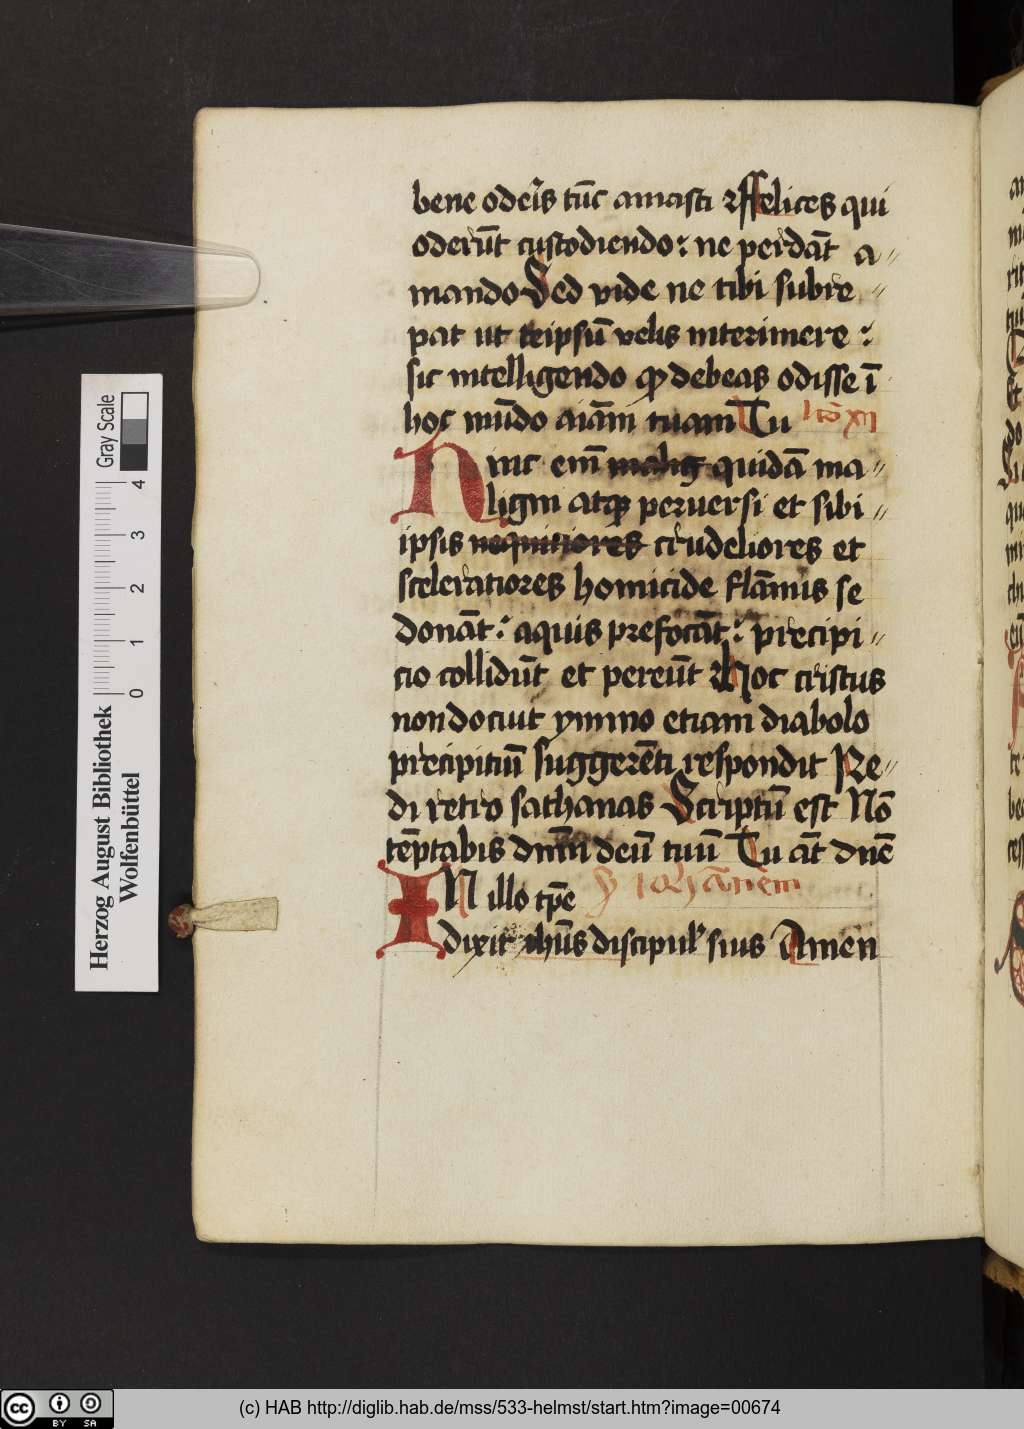 bene oderis tūc amasti ffelices qui
oderūt custodiendo: ne perdāt a〃
mando Sed vide ne tibi subre〃
pat ut teipsū velis interimere :
sic intelligendo ꝙ debeas odisse ī
hoc mūdo aīam tuam Tu lctō xii
Hinc em̄ quidā ma〃
ligni atqꝫ peruersi et sibi〃
ipsis nequiciores crudeliores et
sceleratiores homicide flāmis se
donāt: aquis prefocāt: precipi〃
cio collidūt et pereūt Hoc cristus
non docuit ymmo etiam diabolo
precipitiū suggerēti respondit Re〃
di retro sathanas Scriptū est Nō
tēptabis dnm̄ deū tuū Tu āt dnē
IN illo tp̄e
dixit ihūs discipul' suis Amen
Herzog August Bibliothek
Wolfenbüttel
0 1 2 3 4
Gray Scale
cc BY SA
(c) HAB http://diglib.hab.de/mss/533-helmst/start.htm?image=00674